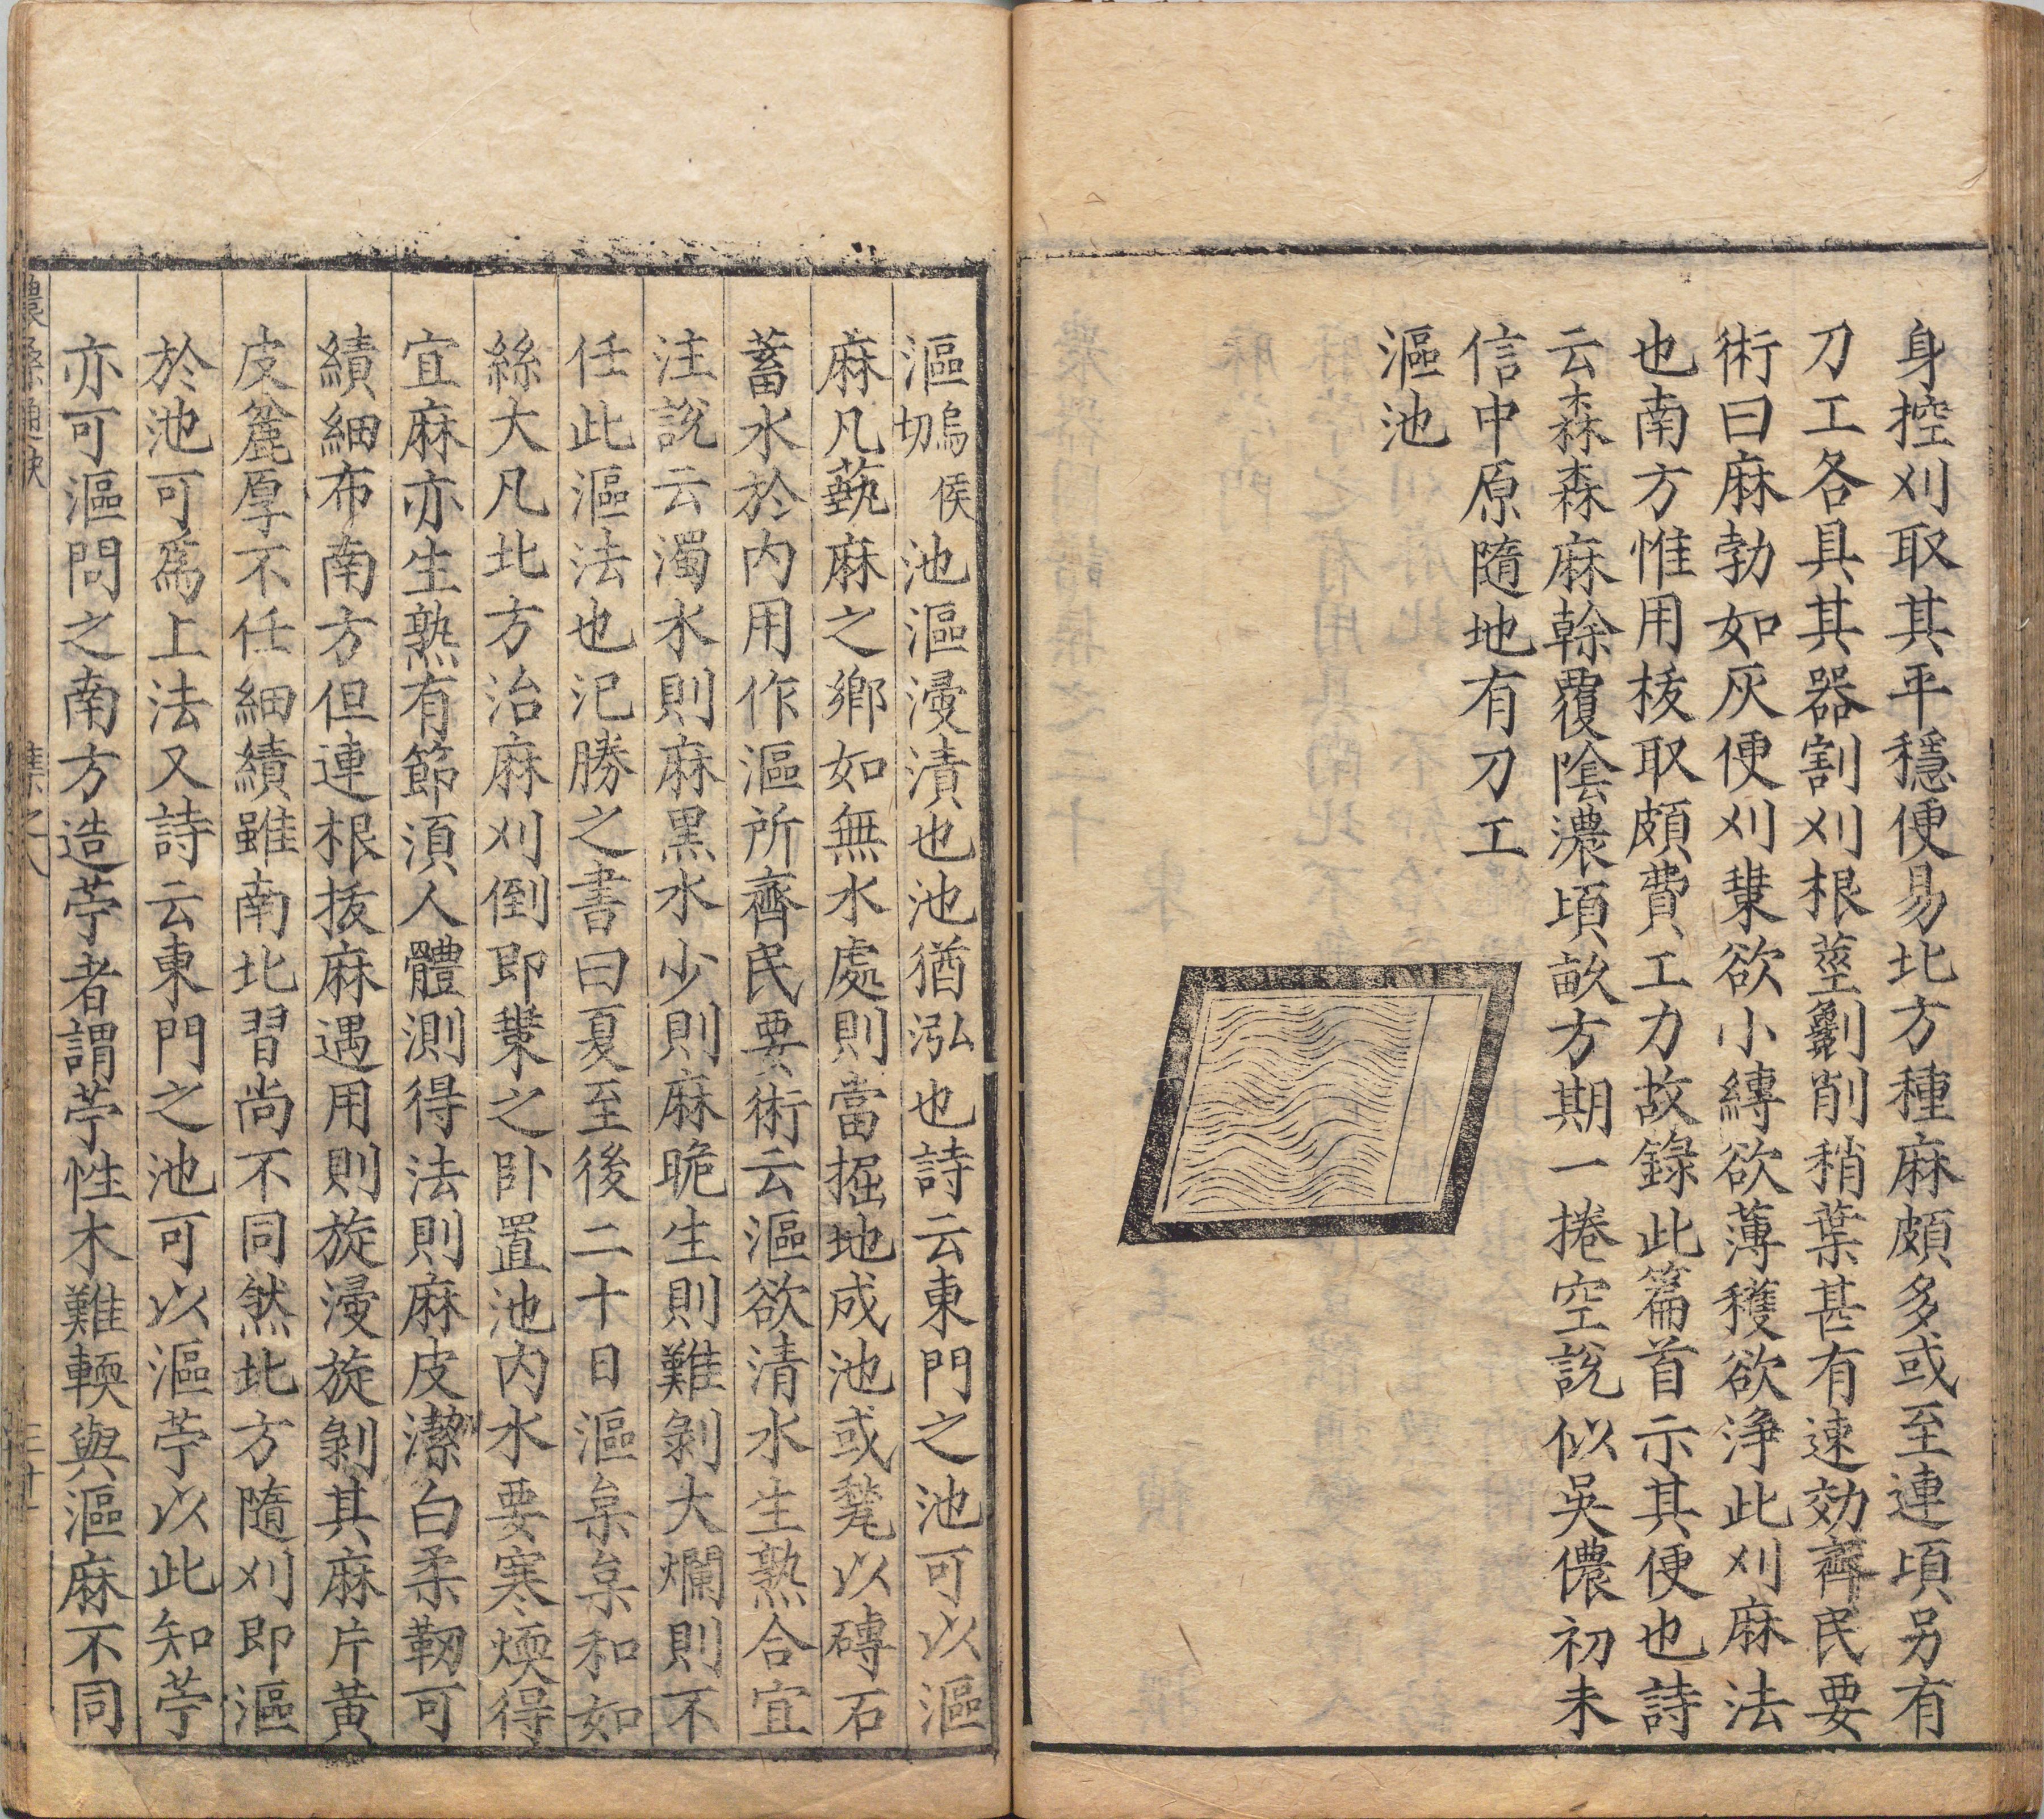 身控刈取其平穩便易北方種麻頗多或至連頃另有
刀工各具其器割刈根莖劙削稍葉甚有速効齊民要
術曰麻勃如灰便刈𣗥欲小縛欲薄穫欲浄此刈麻法
也南方惟用拔取頗費工力故錄此篇首示其便也詩
云森森麻榦覆陰濃頃畝方期一捲空說似吳儂初未
信中原隨地有刀工
漚池
漚塢侯切池漚漫漬也池猶泓也詩云東門之池可以漚
麻凡蓺麻之鄉如無水處則當掘地成池或甃以磚石
蓄水於内用作漚所齊民要術云漚欲清水生熟合宜
注說云濁水則麻黑水少則麻脆生則難剝大爛則不
任此漚法也氾勝之書曰夏至後二十日漚枲枲和如
絲大凡北方治麻刈倒即𣗥之卧置池内水要寒煖得
宜麻亦生熟有節湏人體測得法則麻皮潔白柔韌可
績細布南方但連根拔麻遇用則旋漫旋剝其麻片黄
皮麄厚不任細績雖南北習尚不同然北方隨刈即漚
於池可爲上法又詩云東門之池可以漚苧以此知苧
亦可漚問之南方造苧者謂苧性木難輭與漚麻不同